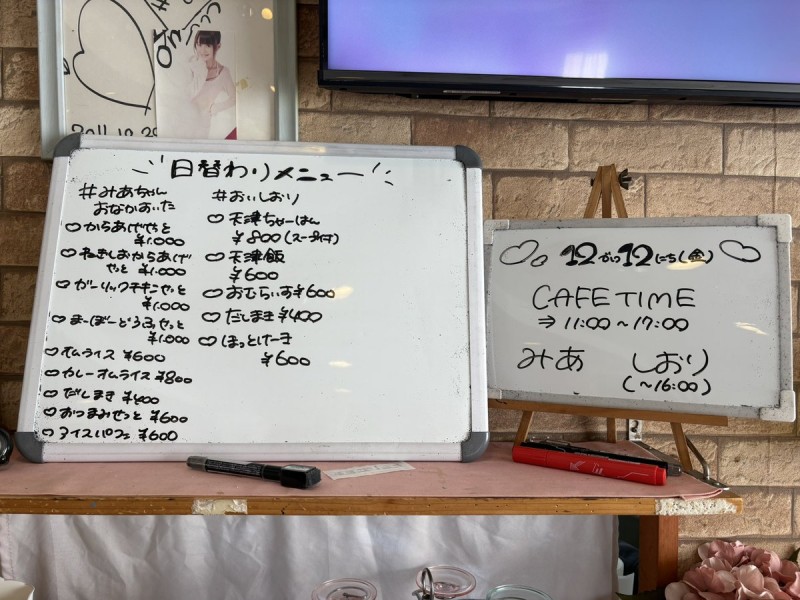 2011.10.29
日替わりメニュー
#みあちゃん
おなかおいた
♡からあげせっと
¥1.000
♡ねぎしおからあげ
せっと ¥1.000
♡ガーリックチキンせっと
¥1.000
♡まーぼーどうふせっと
¥1.000
♡オムライス ¥600
♡カレーオムライス ¥800
♡だしまき ¥400
♡おつまみせっと ¥600
♡アイスパフェ ¥600
#おいしおり
♡天津ちゃーはん
¥800(スープ付)
♡天津飯
¥600
♡おむらいす¥600
♡だしまき¥400
♡ほっとけーき
¥600
12がつ12にち(金)
CAFE TIME
⇒11:00~17:00
みあ しおり
(~16:00)